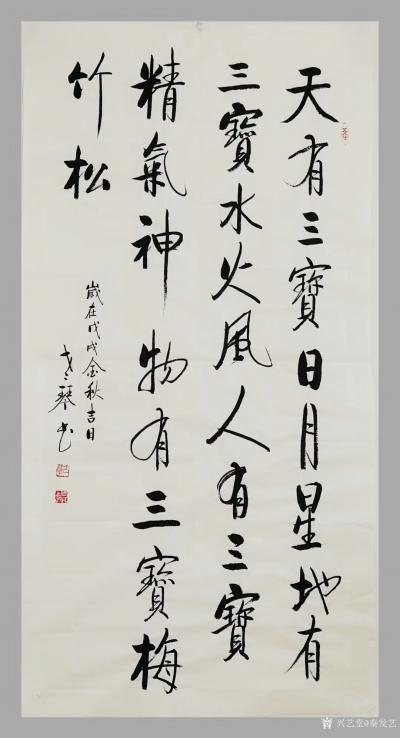 天有三寶日月星地有
三寶水火風人有三寶
精氣神物有三寶梅
竹松
歲在戊戌金秋吉日
琴書
兴艺堂@秦发艺